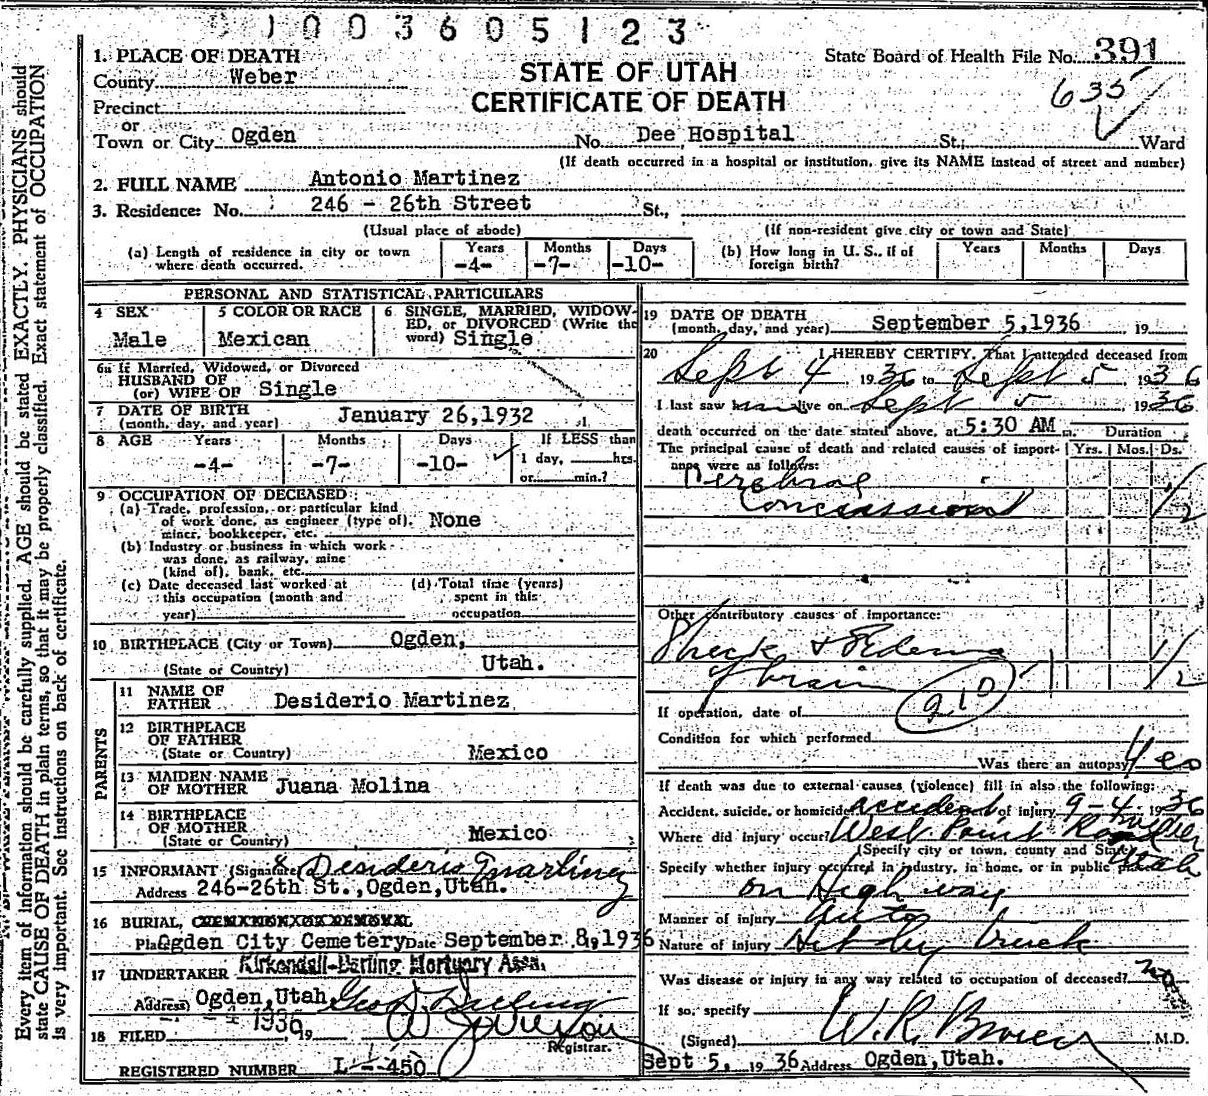 1003605123
1. PLACE OF DEATH
State Board of Health File No. 391
County Weber
STATE OF UTAH
635
Precinct
CERTIFICATE OF DEATH
or
Town or City Ogden No. Dee Hospital St.; Ward
(If death occurred in a hospital or institution, give its NAME instead of street and number)
2. FULL NAME Antonio Martinez
3. Residence: No. 246 - 26th Street St.,
(Usual place of abode) (If non-resident give city or town and State)
(a) Length of residence in city or town where death occurred. Years -4- Months -7- Days -10-
(b) How long in U. S., if of foreign birth? Years Months Days
PERSONAL AND STATISTICAL PARTICULARS
4 SEX Male
5 COLOR OR RACE Mexican
6 SINGLE, MARRIED, WIDOWED, or DIVORCED (Write the word) Single
6a If Married, Widowed, or Divorced
HUSBAND OF
(or) WIFE OF Single
7 DATE OF BIRTH
(month, day, and year) January 26,1932
8 AGE Years Months Days If LESS than
-4- -7- -10- 1 day, hrs.
or min.?
9 OCCUPATION OF DECEASED:
(a) Trade, profession, or particular kind
of work done, as engineer (type of), None
miner, bookkeeper, etc.
(b) Industry or business in which work
was done, as railway, mine
(kind of), bank, etc.
(c) Date deceased last worked at
this occupation (month and
year)
(d) Total time (years)
spent in this
occupation
10 BIRTHPLACE (City or Town) Ogden,
(State or Country) Utah.
PARENTS
11 NAME OF
FATHER Desiderio Martinez
12 BIRTHPLACE
OF FATHER
(State or Country) Mexico
13 MAIDEN NAME
OF MOTHER Juana Molina
14 BIRTHPLACE
OF MOTHER
(State or Country) Mexico
15 INFORMANT (Signature) Desiderio Martinez
Address 246-26th St.,Ogden,Utah.
16 BURIAL, CREMATION, OR REMOVAL
Place Ogden City Cemetery Date September 8, 1936
17 UNDERTAKER Kirkendall-Darling Mortuary Assn.
Address) Ogden,Utah Geo D. Darling
18 FILED 1936 19
Registrar.
REGISTERED NUMBER L - 450
19 DATE OF DEATH
(month, day, and year) September 5,1936 , 19
20 I HEREBY CERTIFY, That I attended deceased from
Sept 4 1936 to Sept 5 1936
I last saw him alive on Sept 5 1936
death occurred on the date stated above, at 5:30 AM m. Duration
The principal cause of death and related causes of importance were as follows: Yrs. Mos. Ds.
Cerebral
Concussion 1/2
Other contributory causes of importance:
Shock & Edema
of brain 1/2
If operation, date of
Condition for which performed
Was there an autopsy Yes
If death was due to external causes (violence) fill in also the following:
Accident, suicide, or homicide accident of injury 9-4 1936
Where did injury occur? West Point Utah
(Specify city or town, county and State)
Specify whether injury occurred in industry, in home, or in public place
on Highway
Manner of injury Auto
Nature of injury Hit by truck
Was disease or injury in any way related to occupation of deceased? no
If so, specify
(Signed) W. R. M.D.
Sept 5, 1936 Address Ogden,Utah.
Every item of information should be carefully supplied. AGE should be stated EXACTLY. PHYSICIANS should
state CAUSE OF DEATH in plain terms, so that it may be properly classified. Exact statement of OCCUPATION
is very important. See Instructions on back of certificate.